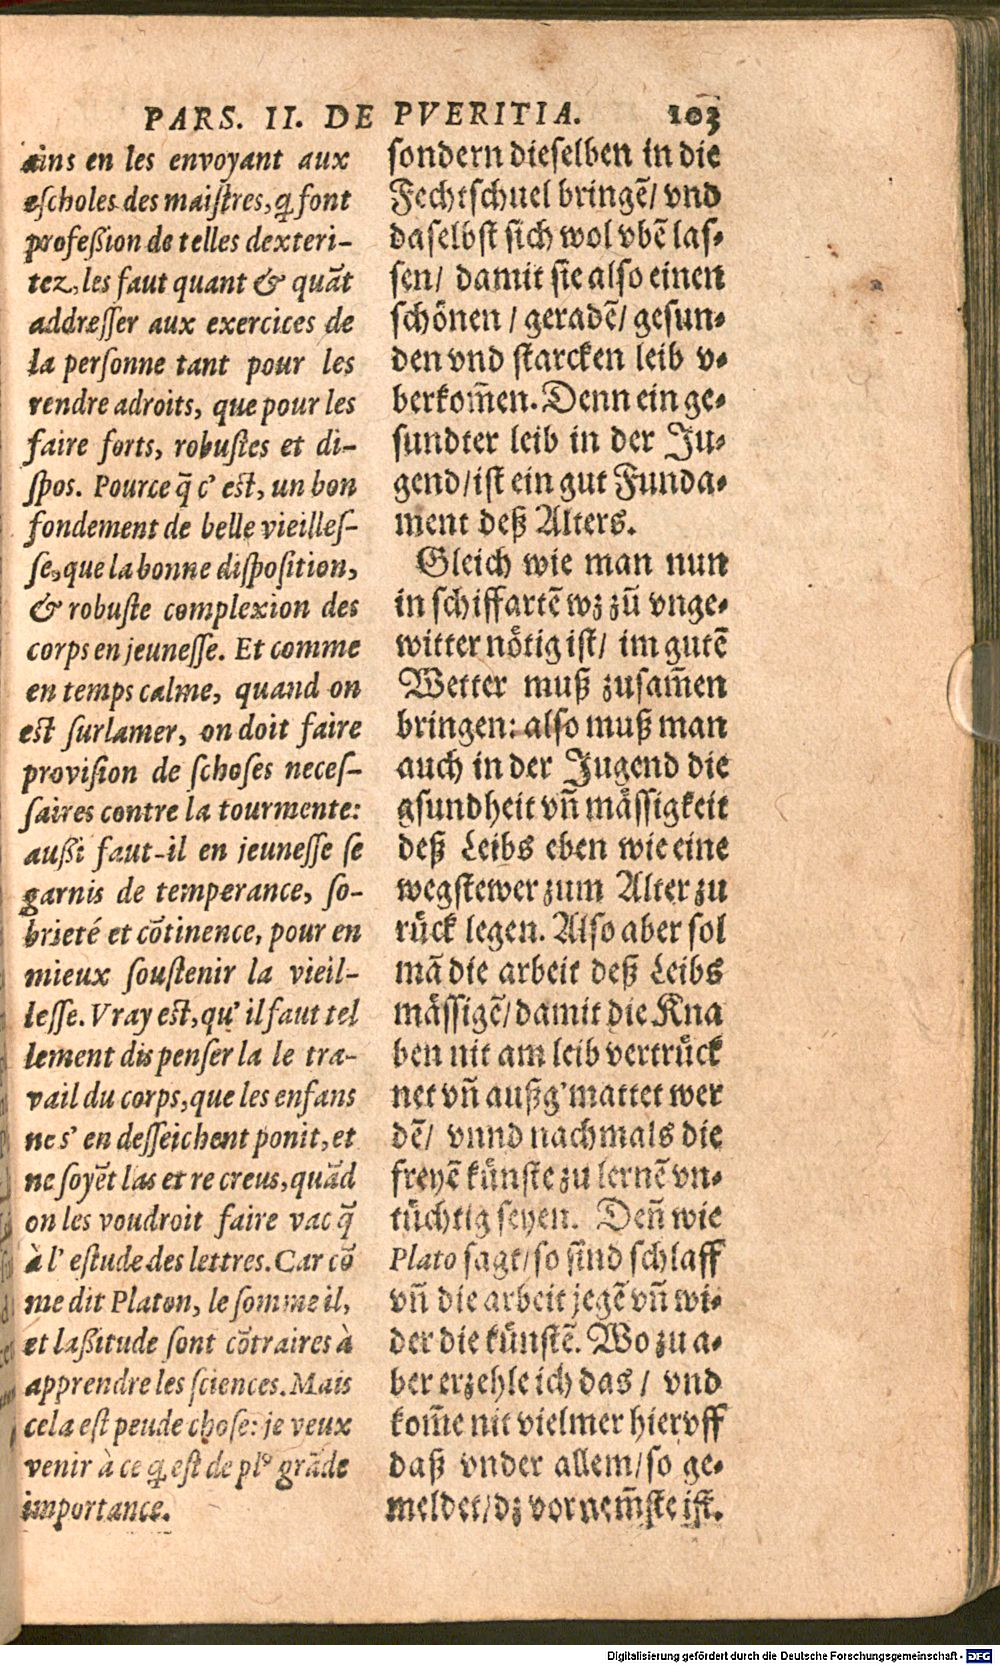 PARS. II. DE PVERITIA. 103
ains en les envoyant aux
eſcholes des maiſtres, q̃ font
profeßion de telles dexteri-
tez, les faut quant & quãt
addreſſer aux exercices de
la perſonne tant pour les
rendre adroits, que pour les
faire forts, robuſtes et di-
ſpos. Pource q̃ c' eſt, un bon
fondement de belle vieilleſ-
ſe, que la bonne diſpoſition,
& robuſte complexion des
corps en jeuneſſe. Et comme
en temps calme, quand on
eſt ſurlamer, on doit faire
proviſion de ſchoſes neceſ-
ſaires contre la tourmente:
außi faut-il en jeuneſſe ſe
garnis de temperance, ſo-
brieté et cõtinence, pour en
mieux ſouſtenir la vieil-
leſſe. Vray eſt, qu' il faut tel
lement dispenſer la le tra-
vail du corps, que les enfans
ne s' en deſſeichent ponit, et
ne ſoyẽt las et re creus, quãd
on les voudroit faire vac q̃
à l' eſtude des lettres. Car cõ
me dit Platon, le ſomme il,
et laßitude ſont cõtraires à
apprendre les ſciences. Mais
cela eſt peude choſe: je veux
venir à ce q̃ eſt de plꝰ grãde
importance.
ſondern dieſelben in die
Fechtſchuel bringẽ/ vnd
daſelbſt ſich wol vbẽ laſ⸗
ſen/ damit ſie alſo einen
ſchönen / geradẽ/ geſun⸗
den vnd ſtarcken leib v⸗
berkom̃en. Denn ein ge⸗
ſundter leib in der Ju⸗
gend/ iſt ein gut Funda⸗
ment deß Alters.
Gleich wie man nun
in ſchiffartẽ wz zũ vnge⸗
witter nötig iſt/ im gutẽ
Wetter muß zuſam̃en
bringen: alſo muß man
auch in der Jugend die
gſundheit vñ mäſſigkeit
deß Leibs eben wie eine
wegſtewer zum Alter zu
rück legen. Alſo aber ſol
mã die arbeit deß Leibs
mäſſigẽ/ damit die Kna
ben nit am leib vertrück
net vñ außg'mattet wer
dẽ/ vnnd nachmals die
freyẽ künſte zu lernẽ vn⸗
tüchtig ſeyen. Deñ wie
Plato ſagt/ ſo ſind ſchlaff
vñ die arbeit jegẽ vñ wi⸗
der die künſtẽ. Wo zu a⸗
ber erzehle ich das / vnd
kom̃e nit vielmer hieruff
daß vnder allem/ ſo ge⸗
meldet/ dz vornem̃ſte iſt.
Digitalisierung gefördert durch die Deutsche Forschungsgemeinschaft - DFG